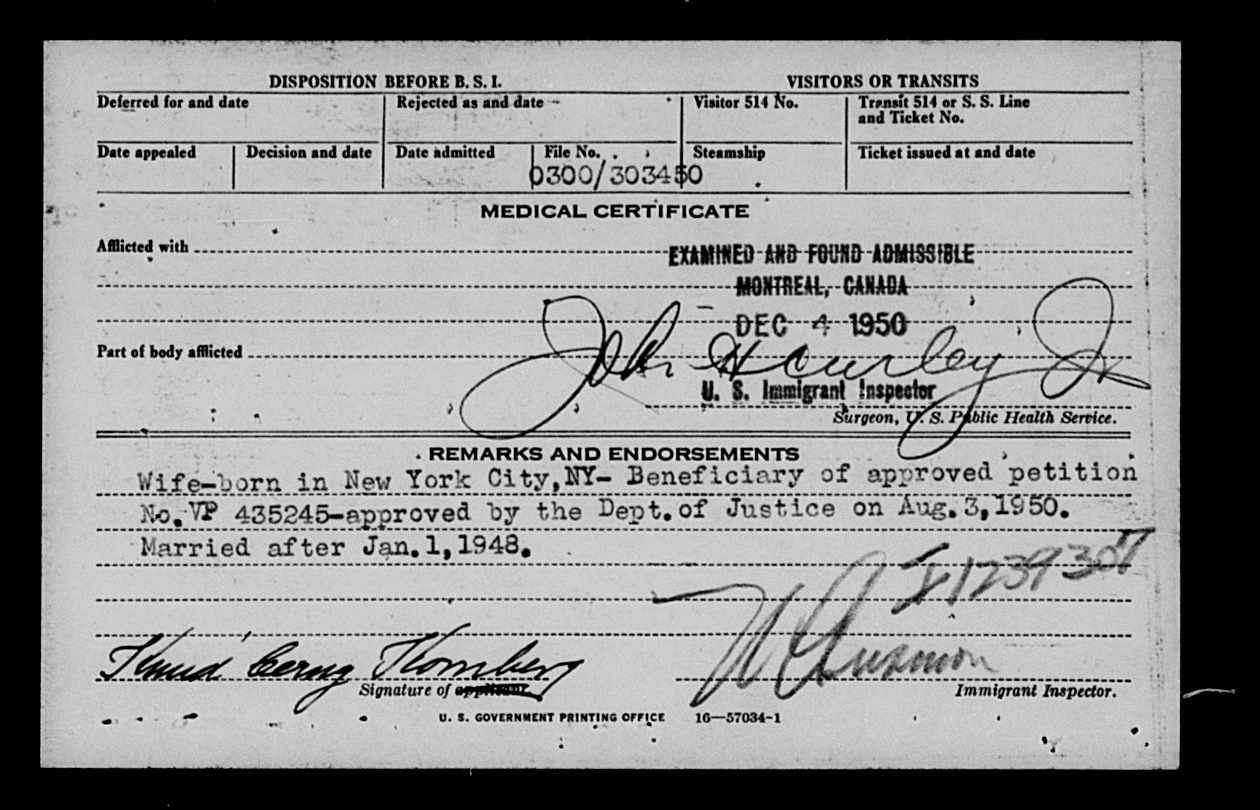 DISPOSITION BEFORE B. S. I.
VISITORS OR TRANSITS
Deferred for and date
Rejected as and date
Visitor 514 No.
Transit 514 or S. S. Line
and Ticket No.
Date appealed
Decision and date
Date admitted
File No.
0300/303450
Steamship
Ticket issued at and date
MEDICAL CERTIFICATE
Afflicted with
EXAMINED AND FOUND ADMISSIBLE
MONTREAL, CANADA
DEC 4 1950
Part of body afflicted
John H Curley Jr
U. S. Immigrant Inspector
Surgeon, U. S. Public Health Service.
REMARKS AND ENDORSEMENTS
Wife-born in New York City,NY- Beneficiary of approved petition
No.VP 435245-approved by the Dept.of Justice on Aug.3,1950.
Married after Jan.1,1948.
Knud
Signature of applicant
Immigrant Inspector.
U. S. GOVERNMENT PRINTING OFFICE 16—57034-1